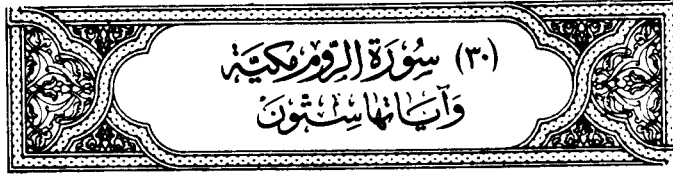 (٣٠) سُورَةُ الرُّومِ مَكِيَّة
وَآيَاتُهَا سِتُّونَ